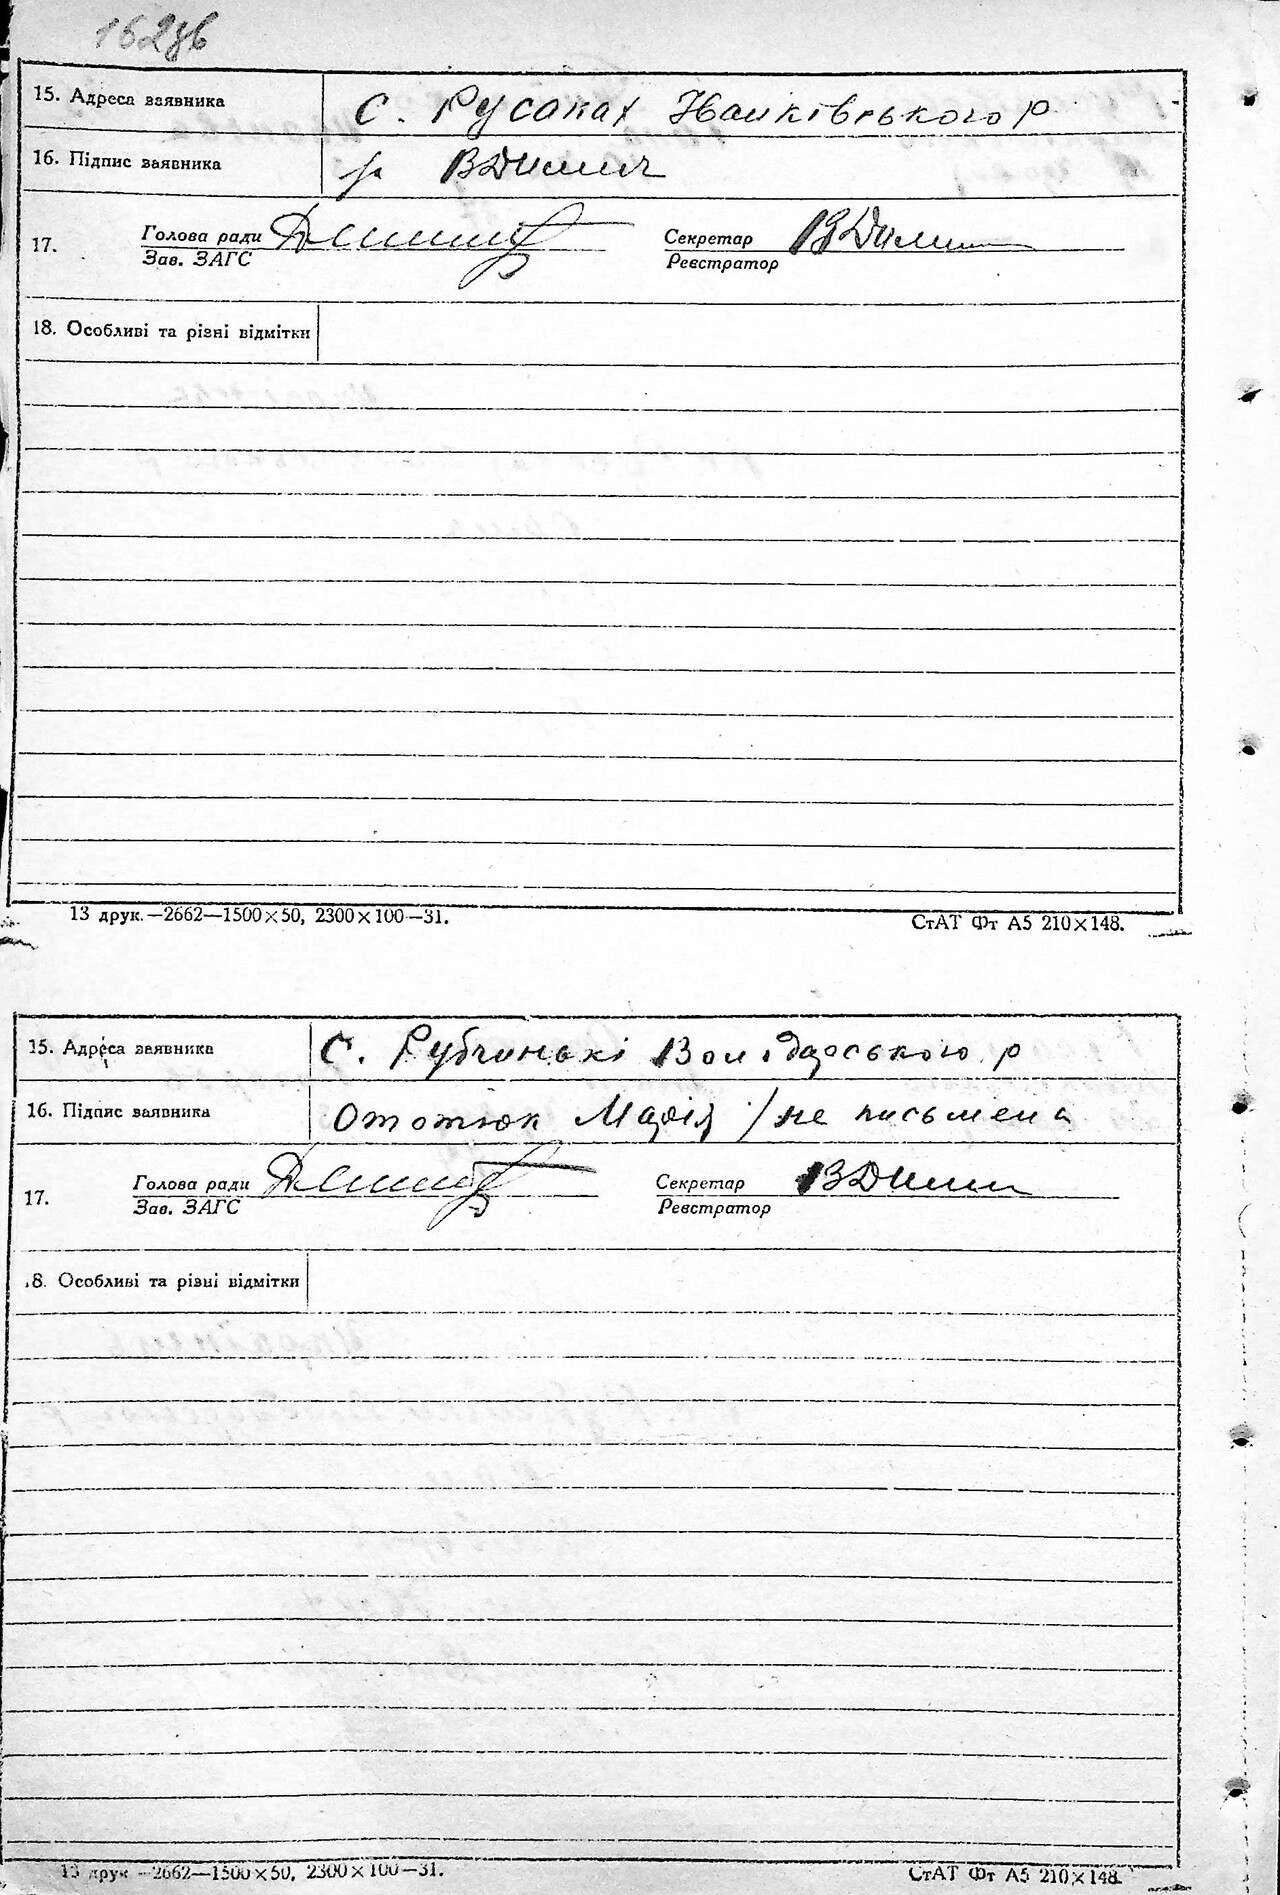 162зв
15. Адреса заявника С. Русаках Іванківського р
16. Підпис заявника ВДимич
17. Голова ради Секретар
Зав. ЗАГС Реєстратор
18. Особливі та різні відмітки
13 друк.—2662—1500×50, 2300×100—31. СтАТ Фт А5 210×148.
15. Адреса заявника С. Рубчинькі Володарського р
16. Підпис заявника Ототюк Марія /не письмена
17. Голова ради Секретар
Зав. ЗАГС Реєстратор
18. Особливі та різні відмітки
13 друк—2662—1500×50, 2300×100—31. СтАТ Фт А5 210×148.